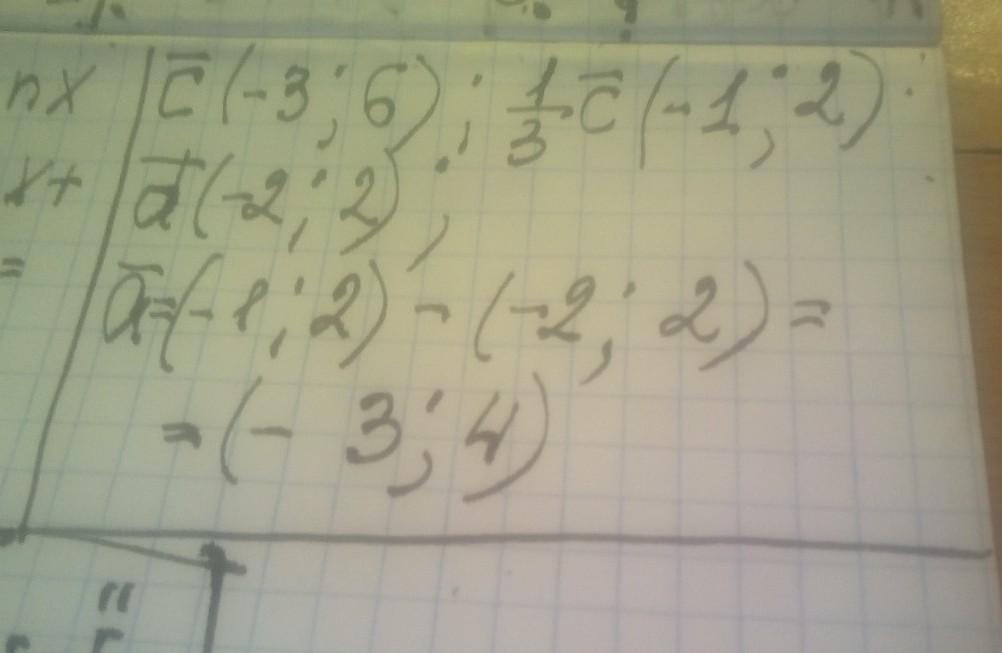 nx | c̅ (-3; 6); 1/3 c̅ (-1; 2).
x+ | d⃗ (-2; 2);
= | a̅=(-1; 2) - (-2; 2) =
= (- 3; 4)